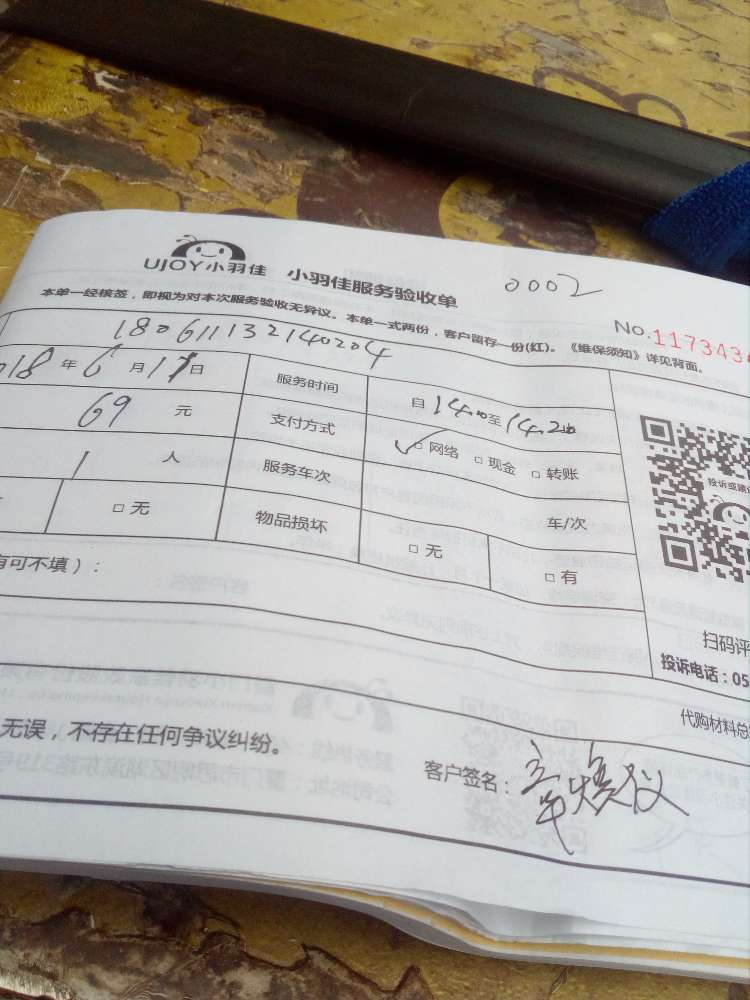 UJOY小羽佳 小羽佳服务验收单 0002
本单一经核签，即视为对本次服务验收无异议。本单一式两份，客户留存一份(红)。《维保须知》详见背面。
No.1173434
180611132140204
018年6月11日 服务时间 自14.10至14.20
69元 支付方式 ✓□网络 □现金 □转账
1人 服务车次 车/次
□无 物品损坏 □无 □有
有可不填）：
扫码评
投诉电话：05
代购材料总
无误，不存在任何争议纠纷。
客户签名：